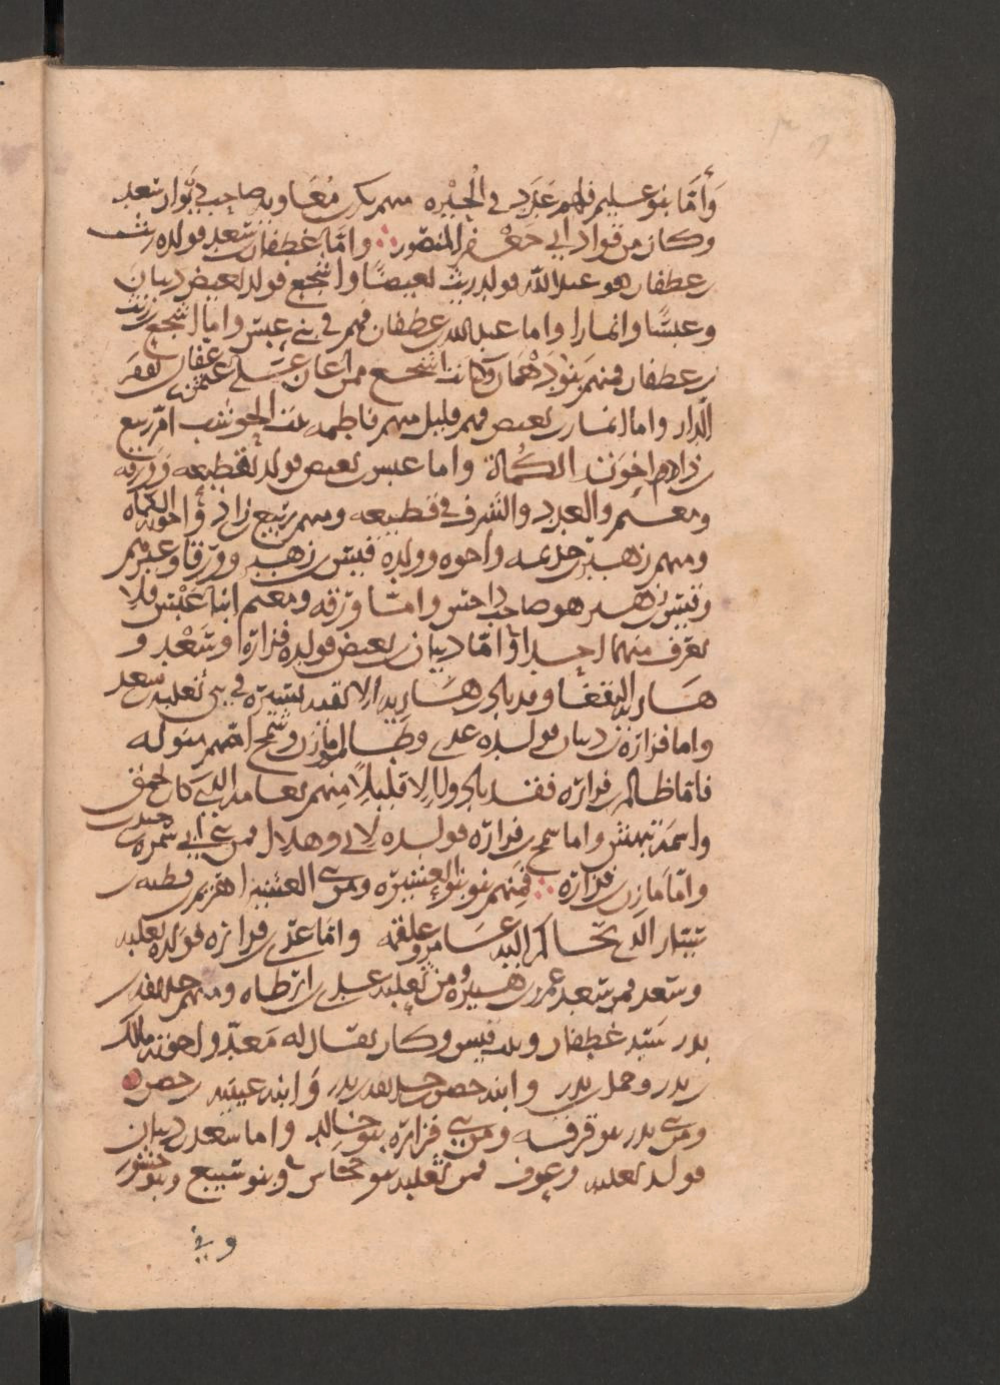 وأما بنو عليم فلهم عدد في الجيرة منهم بكر معاويه صاحب ديوان سعد
وكان من قواد أبي جعفر المنصور وأما غطفان بن سعد فولده ريث
بن غطفان هو عبد الله فولد ريث بغيضا وأشجع فولد بغيض ذبيان
وعبسا وانمارا واما عبد الله بن غطفان فهم في بني عبس واما اشجع بن ريث
بن غطفان فمنهم بنو دهمان وكانت اشجع ممن أعان على عثمن بن عفان
الدار واما انمار بن بغيض فهم قليل منهم فاطمه بنت الخوشب ام ربيع
بن زياد واخوته الكماة واما عبس بن بغيض فولد قطيعه وورقه
ومعتم والعدد والشرف في قطيعه ومنهم ربيع بن زياد وأخوته الكماه
ومنهم زهير بن جذيمه واخوه وولده قيس بن زهير وورقا وغيرهم
وقيس بن زهير هو صاحب داحس وامتا ورقه ومعتم ابنا عبس فلا
نعرف منهما احدا وامّا ذبيان بن بغيض فولده فزارة وسعد و
هاربة البقعا وقد باد هاربه الا نفر يسيرة في بني ثعلبه بن سعد
واما فزارة بن ذبيان فولده عدي وظالم ومازن وشمخ امهم منوله
فاما ظالم بن فزاره فقد بادوا إلا قليلا منهم نعامه الذي كان يحمق
واسمه بيهس واما شمخ بن فزاره فولده لاي وهلال فمن بني لاي سمره بن جندب
وأمّا مازن بن فزارة فمنهم بنو العشيره ومن بني العشيرة هرم بن قطبه بن
سيار الذي تحاكم اليه عامر وعلقمه وأمّا عدي بن فزاره فولده ثعلبه
وسعد فمن سعد عمر بن هبيره ومن ثعلبه عدي بن ارطاه ومنهم حذيفه بن
بدر سيد غطفان وبيت قيس وكان يقال له رب معدّ واخوته مالك
بن بدر وحمل بن بدر وابنه حصن بن حذيفه بن بدر وابنه عيينه بن حصن
ومن بني بدر بنو قرفه ومن بني فزارة بنو خالد واما سعد بن ذبيان
فولد ثعلبه وعوف فمن ثعلبه بنو جحاش وبنو سبيع وبنو حشور
وفي